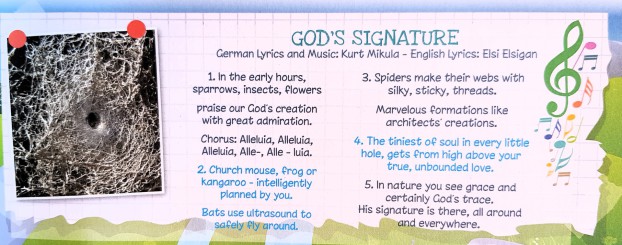 GOD'S SIGNATURE
German Lyrics and Music: Kurt Mikula - English Lyrics: Elsi Elsigan
1. In the early hours,
sparrows, insects, flowers
praise our God's creation
with great admiration.
Chorus: Alleluia, Alleluia,
Alleluia, Alle-, Alle - luia.
2. Church mouse, frog or
kangaroo - intelligently
planned by you.
Bats use ultrasound to
safely fly around.
3. Spiders make their webs with
silky, sticky, threads.
Marvelous formations like
architects' creations.
4. The tiniest of soul in every little
hole, gets from high above your
true, unbounded love.
5. In nature you see grace and
certainly God's trace.
His signature is there, all around
and everywhere.